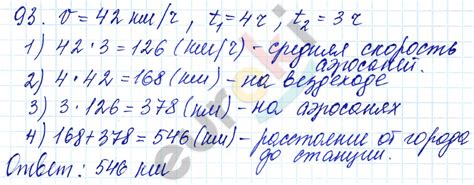 93. v = 42 км/ч, t₁ = 4 ч, t₂ = 3 ч
1) 42 · 3 = 126 (км/ч) - средняя скорость
аэросаней.
2) 4 · 42 = 168 (км) - на вездеходе
3) 3 · 126 = 378 (км) - на аэросанях
4) 168 + 378 = 546 (км) - расстояние от города
до станции.
Ответ: 546 км